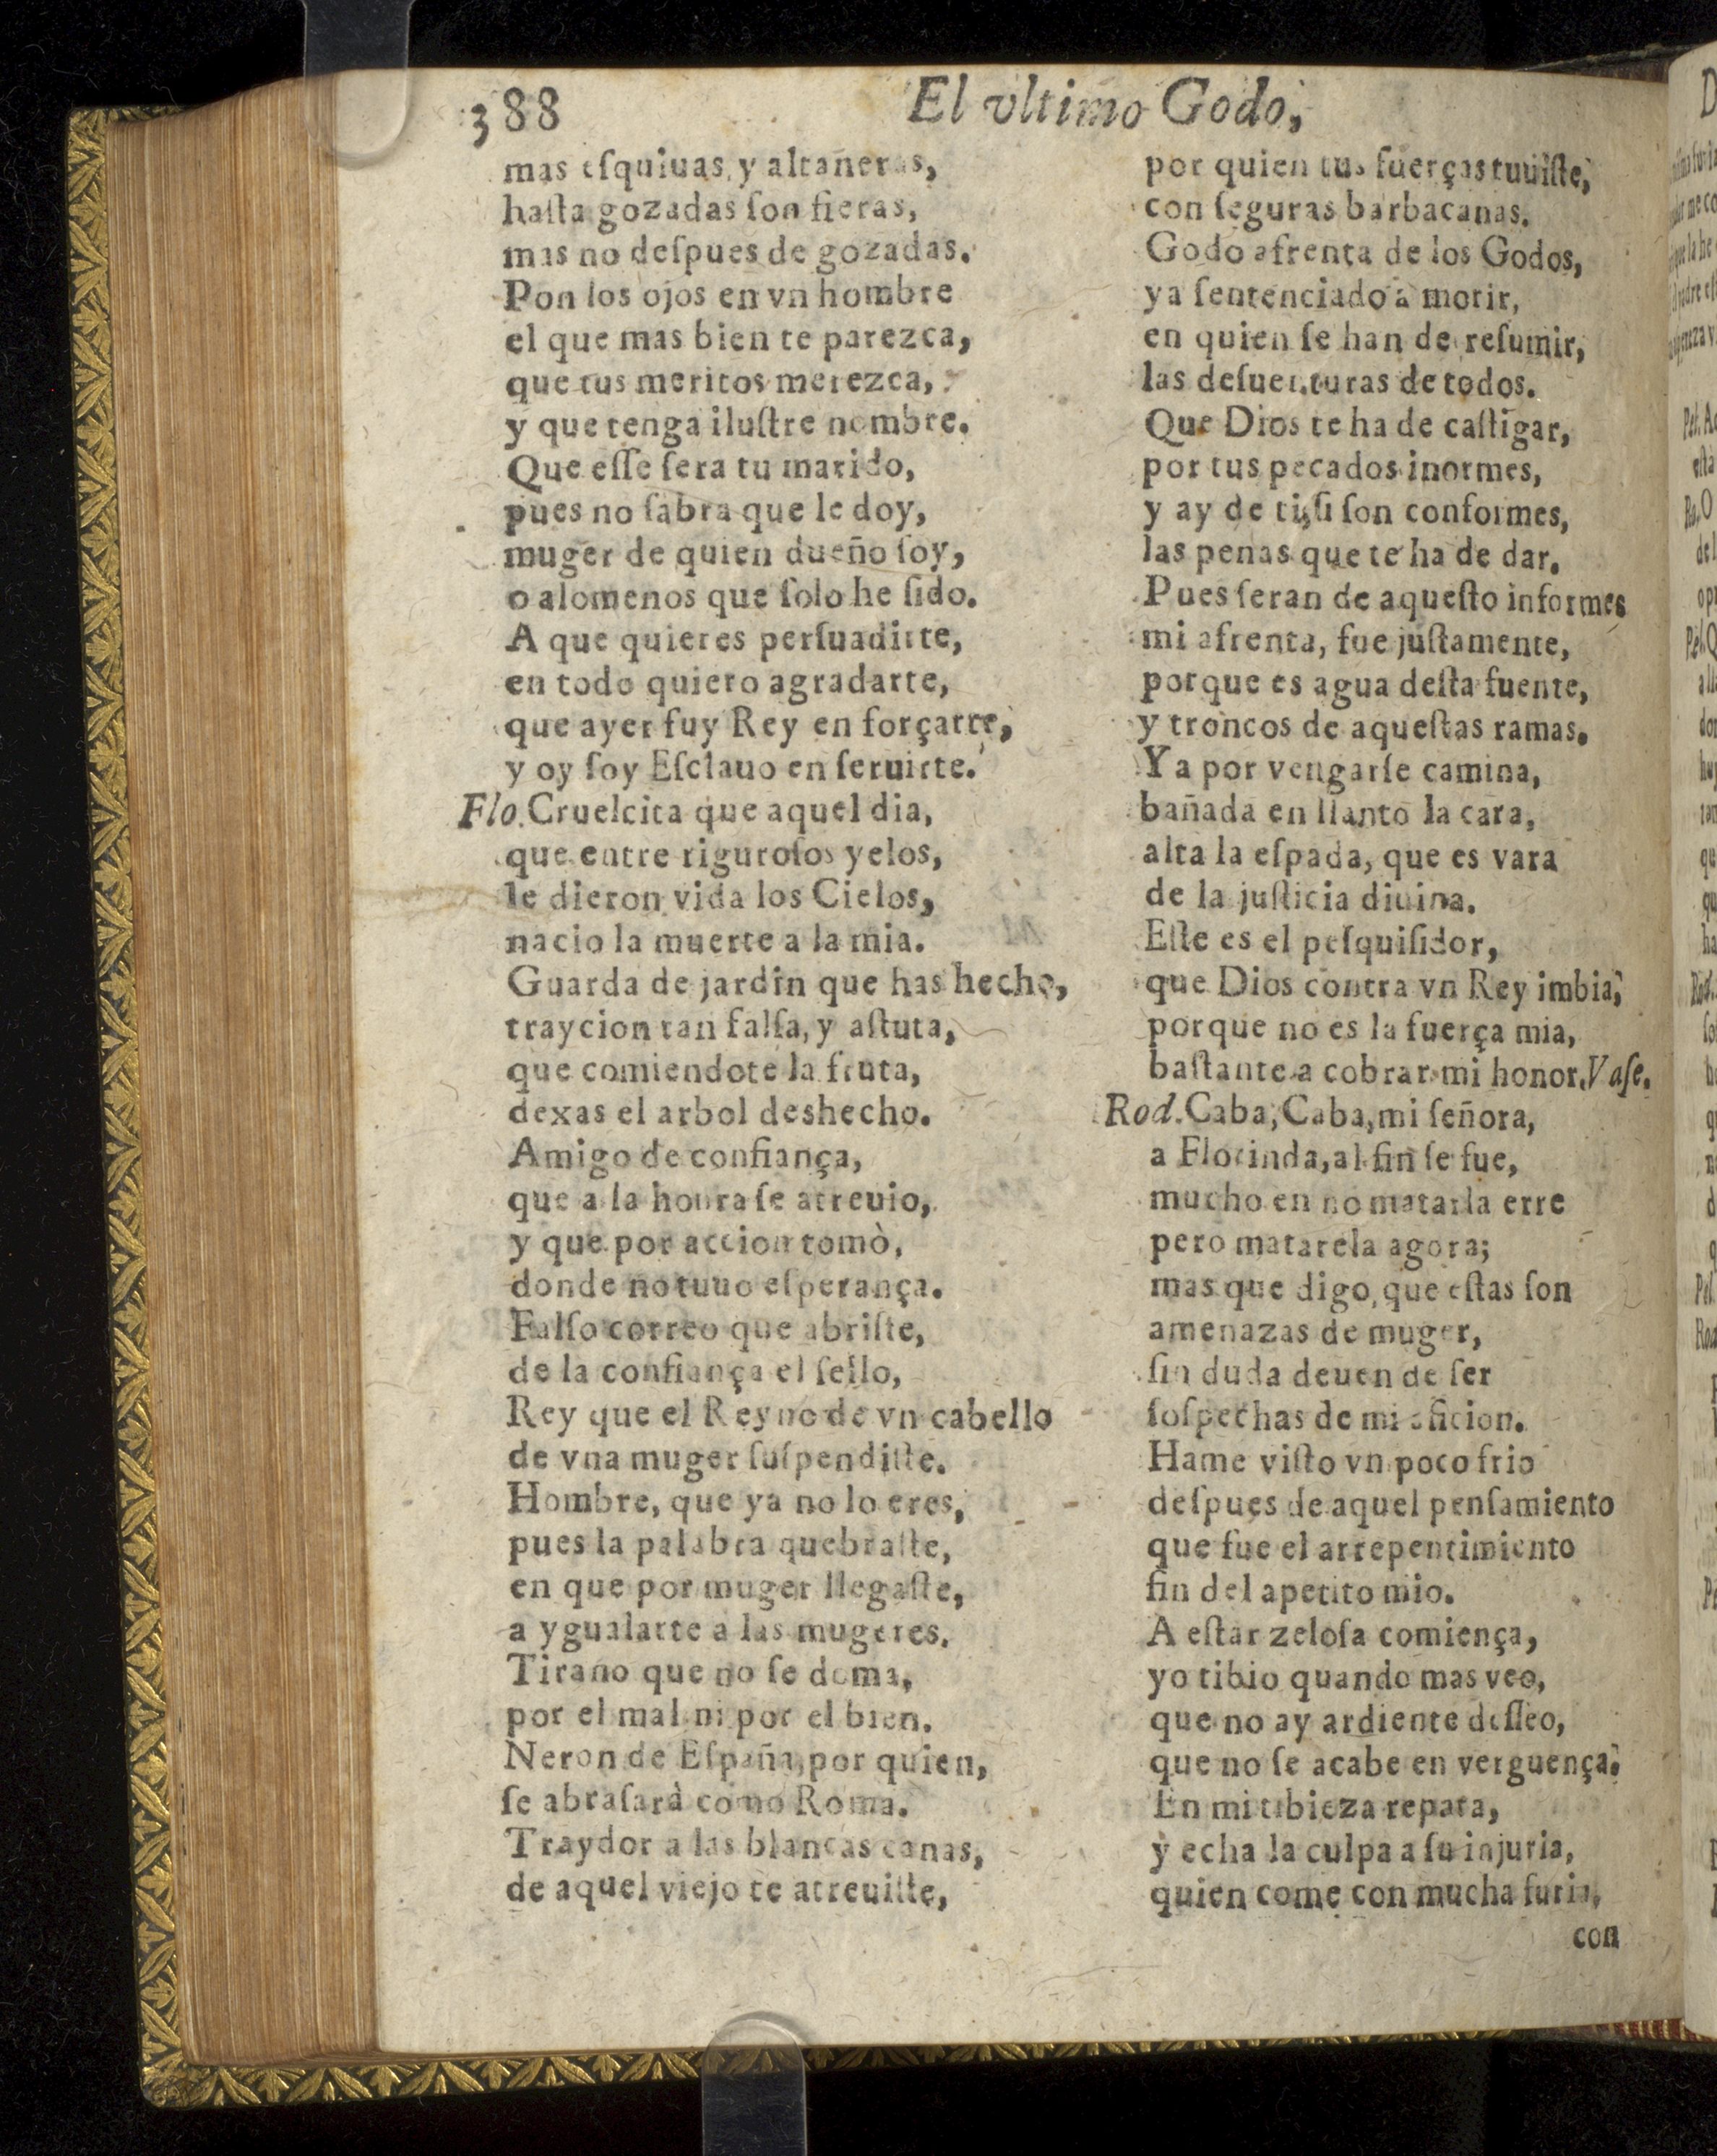 388
El vltimo Godo,
mas eſquiuas, y altañeras,
haſta gozadas ſon fieras,
mas no deſpues de gozadas.
Pon los ojos en vn hombre
el que mas bien te parezca,
que tus meritos merezca,
y que tenga iluſtre nombre.
Que eſſe ſera tu marido,
pues no ſabra que le doy,
muger de quien dueño ſoy,
o alomenos que ſolo he ſido.
A que quieres perſuadirte,
en todo quiero agradarte,
que ayer fuy Rey en forçarte,
y oy ſoy Eſclauo en ſeruirte.
Flo. Cruelcita que aquel dia,
que entre riguroſos yelos,
le dieron vida los Cielos,
nacio la muerte a la mia.
Guarda de jardin que has hecho,
traycion tan falſa, y aſtuta,
que comiendote la fruta,
dexas el arbol deshecho.
Amigo de confiança,
que a la honra ſe atreuio,
y que por accion tomò,
donde no tuuo eſperança.
Falſo correo que abriſte,
de la confiança el ſello,
Rey que el Reyno de vn cabello
de vna muger ſuſpendiſte.
Hombre, que ya no lo eres,
pues la palabra quebraſte,
en que por muger llegaſte,
a ygualarte a las mugeres.
Tirano que no ſe doma,
por el mal ni por el bien.
Neron de Eſpaña, por quien,
ſe abraſarà como Roma.
Traydor a las blancas canas,
de aquel viejo te atreuiſte,
por quien tus fuerças tuuiſte,
con ſeguras barbacanas.
Godo afrenta de los Godos,
ya ſentenciado a morir,
en quien ſe han de reſumir,
las deſuenturas de todos.
Que Dios te ha de caſtigar,
por tus pecados inormes,
y ay de ti, ſi ſon conformes,
las penas que te ha de dar.
Pues ſeran de aqueſto informes
mi afrenta, fue juſtamente,
porque es agua deſta fuente,
y troncos de aqueſtas ramas.
Ya por vengarſe camina,
bañada en llanto la cara,
alta la eſpada, que es vara
de la juſticia diuina.
Eſte es el peſquiſidor,
que Dios contra vn Rey imbia,
porque no es la fuerça mia,
baſtante a cobrar mi honor. Vaſe.
Rod. Caba, Caba, mi ſeñora,
a Florinda, al fin ſe fue,
mucho en no matarla erre
pero matarela agora;
mas que digo, que eſtas ſon
amenazas de muger,
ſin duda deuen de ſer
ſoſpechas de mi aficion.
Hame viſto vn poco frio
deſpues de aquel penſamiento
que fue el arrepentimiento
fin del apetito mio.
A eſtar zeloſa comiença,
yo tibio quando mas veo,
que no ay ardiente deſſeo,
que no ſe acabe en verguença.
En mi tibieza repara,
y echa la culpa a ſu injuria,
quien come con mucha furia,
con